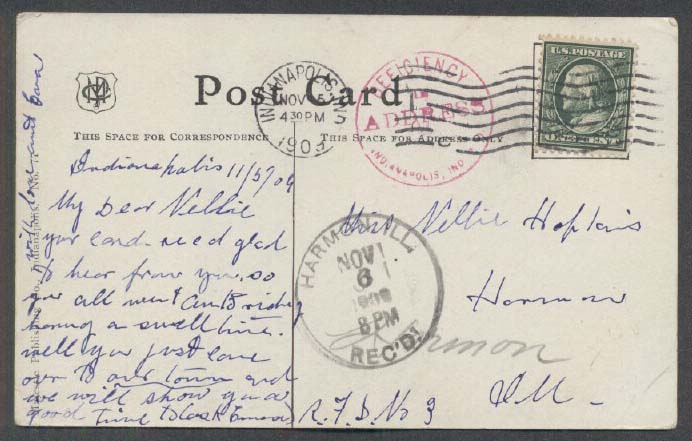 Post Card
THIS SPACE FOR CORRESPONDENCE
THIS SPACE FOR ADDRESS ONLY
U.S. POSTAGE
INDIANAPOLIS, IND.
NOV 5
4 30 PM
1909
DEFICIENCY
IN
ADDRESS
INDIANAPOLIS, IND.
Indianapolis 11/5/09
My Dear Nellie
your card recd glad
to hear from you, so
you all went
having a swell time.
well you just come
over to our town and
we will show you a
good time
with love
Publishing Co., Indianapolis
Miss Nellie Hopkins
Harmon
Ill
R.F.D. No 3
Harmon
HARMON, ILL.
NOV
6
1909
8 PM
REC'D.